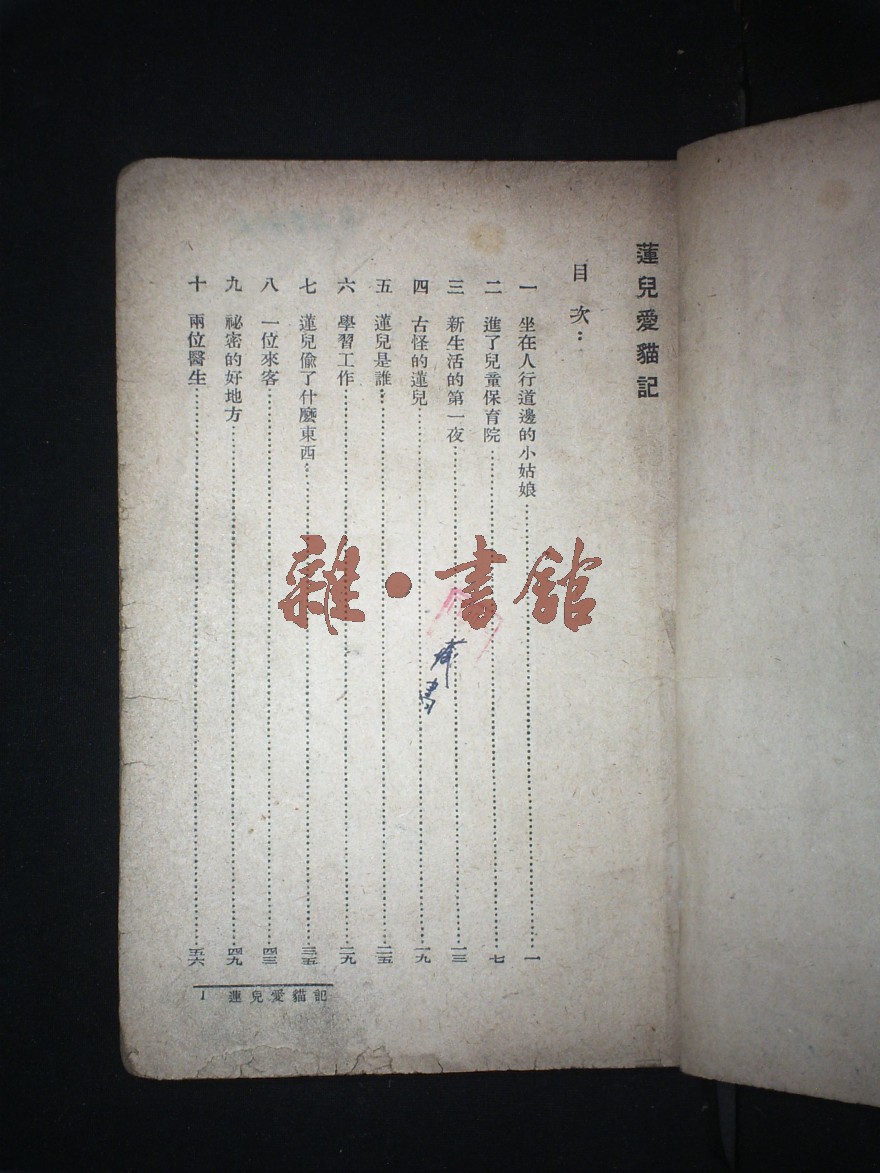 蓮兒愛貓記
目次：
一 坐在人行道邊的小姑娘……一
二 進了兒童保育院……七
三 新生活的第一夜……一三
四 古怪的蓮兒……一九
五 蓮兒是誰……二五
六 學習工作……二九
七 蓮兒偸了什麼東西……三五
八 一位來客……四三
九 祕密的好地方……四九
十 兩位醫生……五六
1 蓮兒愛貓記
雜·書館